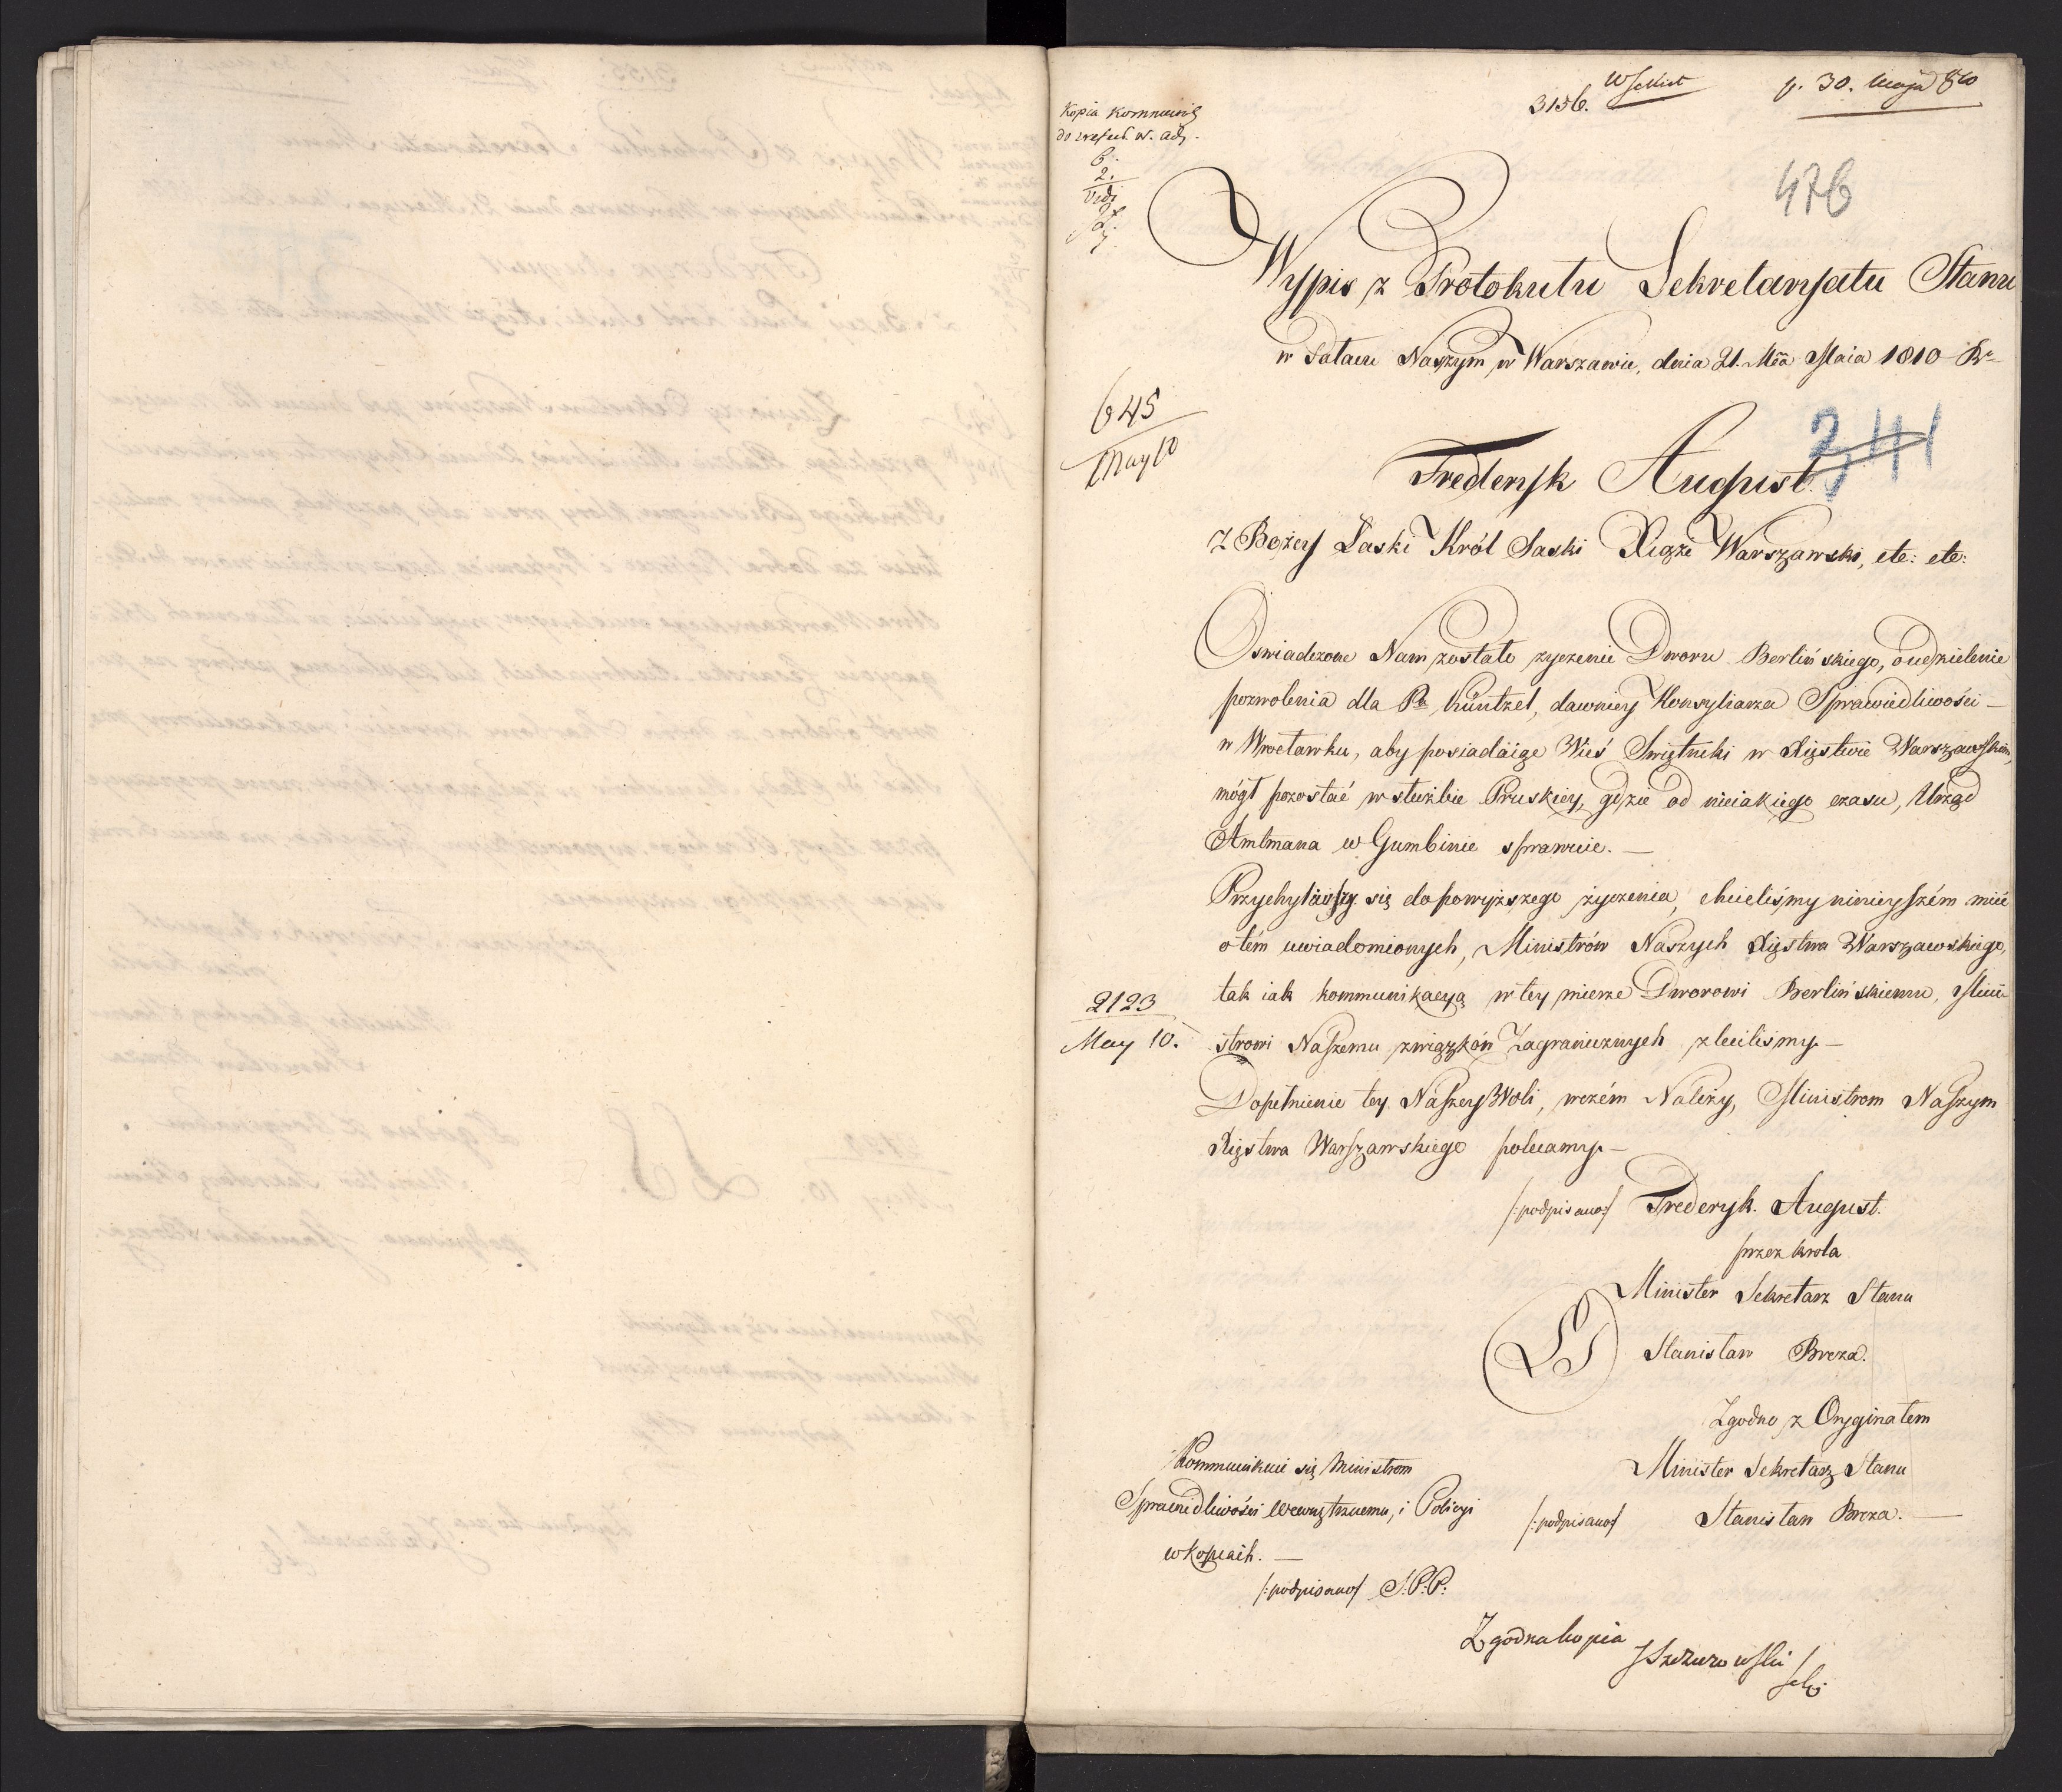 3156.
p. 30. Maja 810
Kopia kommunik
476
Wypis z Protokułu Sekretaryatu Stanu
w Pałacu Naszym w Warszawie, dnia 21. Mca Maia 1810 Ru
645
May 10
2,141
Fryderyk August.
Z Bożey Łaski Król Saski Xiąże Warszawski, etc: etc:
Oswiadczone Nam zostało życzenie Dworu Berlińskiego, o udzielenie
pozwolenia dla Pa Küntzel, dawniey Konsyliarza Sprawiedliwości –
w Wrocławku, aby posiadaiąc Wieś Swiętniki w Xięstwie Warszawskim,
mógł pozostać w służbie Pruskiey, gdzie od nieiakiego czasu, Urząd
Amtmana w Gumbinie sprawuie. –
Przychylaiąc się do powyższego życzenia, chcieliśmy ninieyszém mieć
o tém uwiadomionych, Ministrów Naszych Xięstwa Warszawskiego,
tak iak kommunikacyą w tey mierze Dworowi Berlińskiemu, Mini-
2123
May 10.
strowi Naszemu związków Zagranicznych zleciliśmy –
Dopełnienie tey Naszey Woli, w czém Należy, Ministrom Naszym
Xięstwa Warszawskiego polecamy –
/:podpisano:/ Fryderyk August.
przez Krola
Minister Sekretarz Stanu
LS
Stanisław Breza.
Zgodno z Oryginałem
Minister Sekretarz Stanu
/:podpisano/ Stanisław Breza. –
Kommunikuie się Ministrom
Sprawiedliwości Wewnętrznemu, i Policyi
w kopiach. –
/:podpisano/ S.P.P:
Zgodna kopia